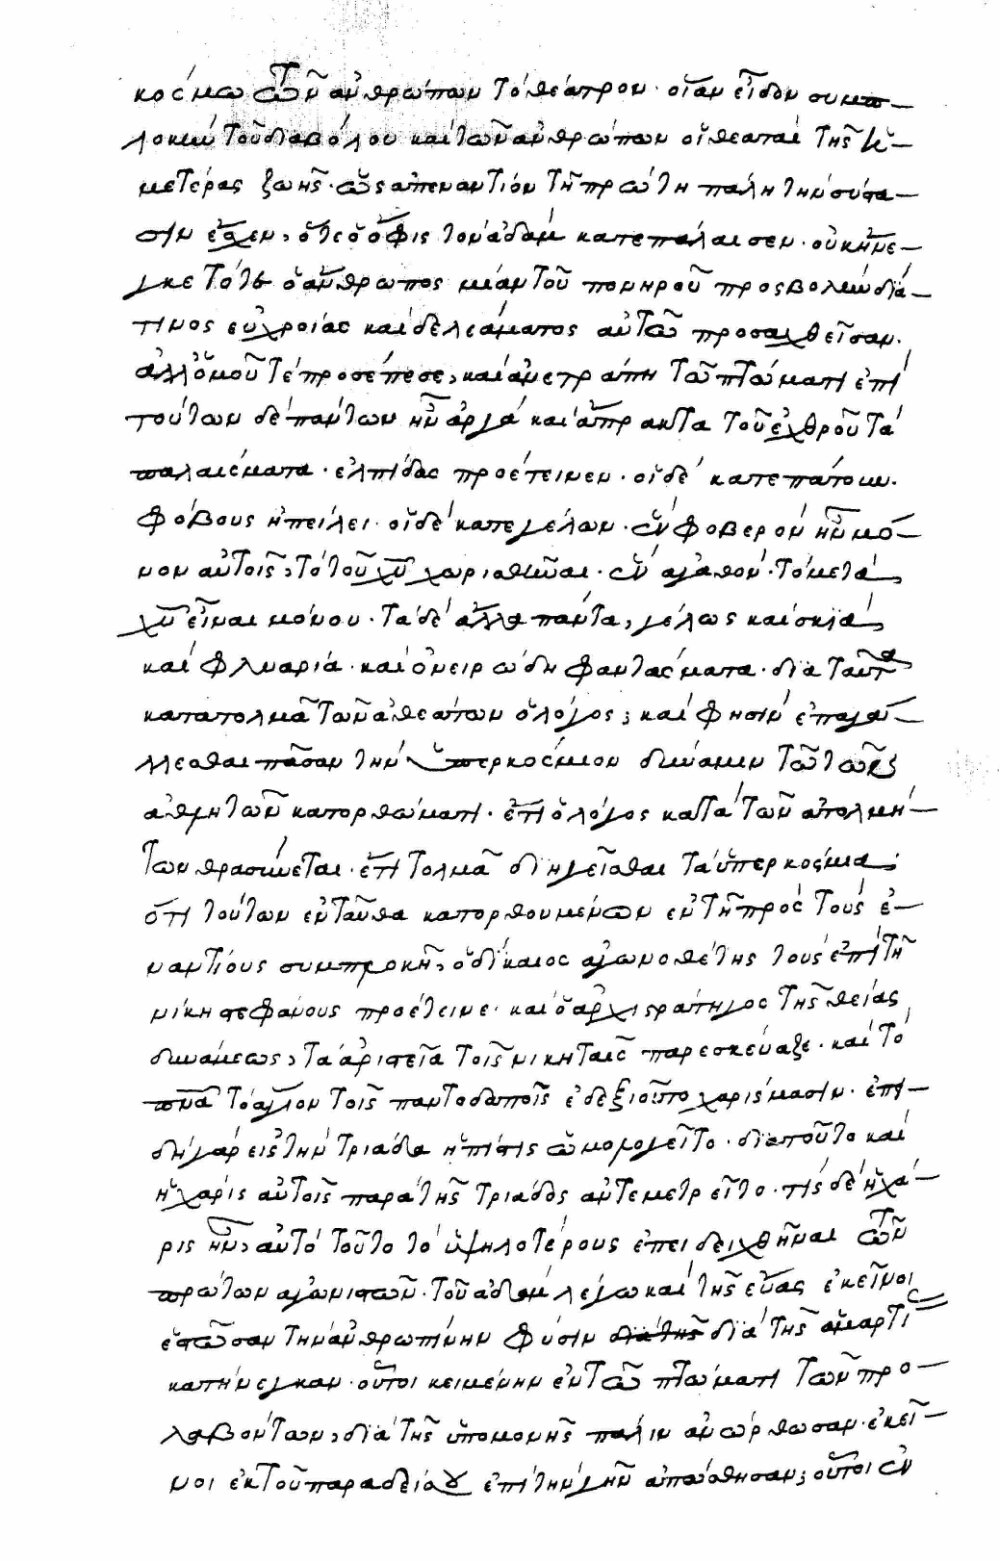 κόσμω τῶν ἀνθρώπων τὸ θέατρον· οἵαν εἶδον συμπ-
λοκὴν τοῦ διαβόλου καὶ τῶν ἀνθρώπων οἱ θεαταὶ τῆς ἡ-
μετέρας ζωῆς· ὡς ἀπεναντίον τῇ πρώτη πάλη τὴν σύστα-
σιν ἔσχεν, ὅτε ὁ ὄφις τὸν ἀδὰμ κατεπάλαισεν· οὐκ ἤνε-
γκε τότε ὁ ἄνθρωπος μίαν τοῦ πονηροῦ προσβολὴν διά
τινος εὐχροίας καὶ δελεάσματος αὐτῶ προσαχθεῖσαν·
ἀλλ' ὁμοῦ τὲ προσέπεσε, καὶ ἀνετράπη τῶ πτώματι ἐπὶ
τούτων δὲ πάντων ἦν ἀργὰ καὶ ἄπρακτα τοῦ ἐχθροῦ τὰ
παλαίσματα· ἐλπίδας προέτεινεν· οἱ δὲ κατεπάτουν·
φόβους ἠπείλει· οἱ δὲ κατεγέλων· ἓν φοβερὸν ἦν μό-
νον αὐτοῖς, τὸ τοῦ χῦ χωρισθῆναι· ἓν ἀγαθὸν· τὸ μετὰ
χῦ εἶναι μόνου· τὰ δὲ ἄλλα πάντα, γέλως καὶ σκιὰ,
καὶ φλυαρία· καὶ ὀνειρώδη φαντάσματα· διὰ ταῦτα
κατατολμᾶ τῶν ἀθεάτων ὁ λόγος; καὶ φησὶν ἐπαγά-
λλεσθαι πᾶσαν τὴν ὑπερκόσμιον δύναμιν τῶ τῶν
ἀθλητῶν κατορθώματι· ἔτι ὁ λόγος κατὰ τῶν ἀτολμή-
των θρασύνεται· ἔτι τολμᾶ διηγεῖσθαι τὰ ὑπερκόσμια;
ὅτι τούτων ἐνταῦθα κατορθουμένων ἐν τῆ πρὸς τοὺς ἐ-
ναντίους συμπλοκῆ, ὁ δίκαιος ἀγωνοθέτης τοὺς ἐπὶ τῆ
νίκη στεφάνους προέτεινε· καὶ ὁ ἀρχιστράτηγος τῆς θείας
δυνάμεως, τὰ ἀριστεῖα τοῖς νικηταῖς παρεσκεύαζε· καὶ τὸ
πνᾶ τὸ ἅγιον τοῖς παντοδαποῖς ἐδεξιοῦτο χαρίσμασιν· ἐπει-
δὴ γὰρ εἰς τὴν τριάδα ἡ πίστις ὡμολογεῖτο· διατοῦτο καὶ
ἡ χάρις αὐτοῖς παρὰ τῆς τριάδος ἀντεμετρεῖτο· τίς δὲ ἡ χά-
ρις ἦν, αὐτὸ τοῦτο τὸ ὑψηλοτέρους ἐπειδειχθῆναι τῶν
πρώτων ἀγωνιστῶν· τοῦ ἀδὰμ λέγω καὶ τῆς εὔας ἐκεῖνοι
ἐστῶσαν τὴν ἀνθρωπίνην φύσιν διὰ τῆς διὰ τῆς ἁμαρτί
κατήνεγκαν· οὗτοι κειμένην ἐν τῶ πτώματι τῶν προ-
λαβόντων, διὰ τῆς ὑπομονῆς πάλιν ἀνώρθωσαν· ἐκεῖ-
νοι ἐκ τοῦ παραδείσου ἐπὶ τὴν γῆν ἀπώσθησαν; οὗτοι ἐν